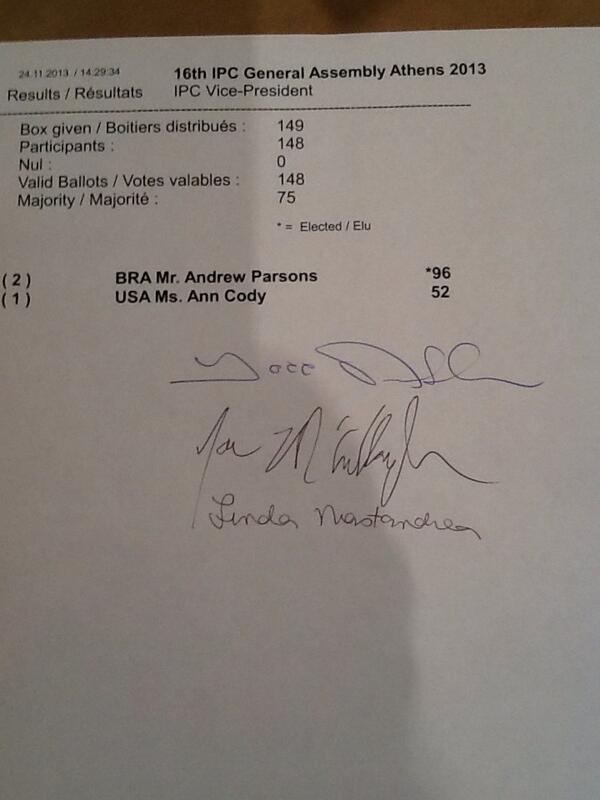 24.11.2013 / 14:29:34 16th IPC General Assembly Athens 2013
Results / Résultats IPC Vice-President
Box given / Boitiers distribués : 149
Participants : 148
Nul : 0
Valid Ballots / Votes valables : 148
Majority / Majorité : 75
* = Elected / Elu
( 2 ) BRA Mr. Andrew Parsons *96
( 1 ) USA Ms. Ann Cody 52
Linda Mastandrea